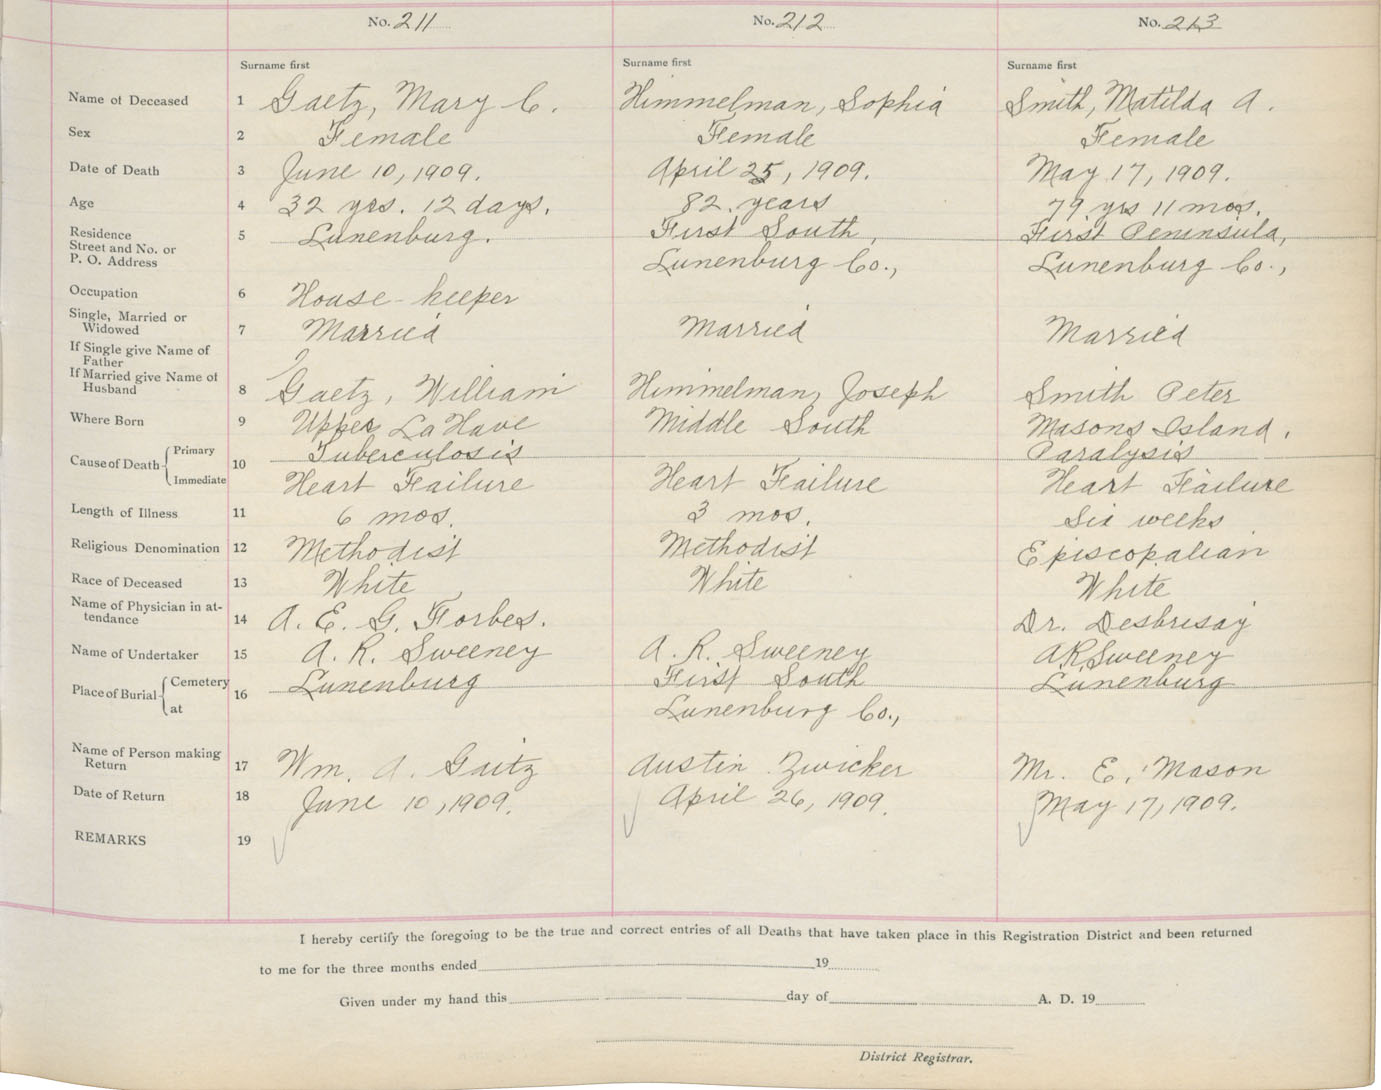 No. 211 No. 212 No. 213
Surname first Surname first Surname first
Name of Deceased 1 Gaetz, Mary C. Himmelman, Sophia Smith, Matilda A.
Sex 2 Female Female Female
Date of Death 3 June 10, 1909. April 25, 1909. May 17, 1909.
Age 4 32 yrs. 12 days. 82 years 79 yrs 11 mos.
Residence 5 Lunenburg. First South, First Peninsula,
Street and No. or
P. O. Address Lunenburg Co., Lunenburg Co.,
Occupation 6 House-keeper
Single, Married or
Widowed 7 Married Married Married
If Single give Name of
Father
If Married give Name of
Husband 8 Gaetz, William Himmelman, Joseph Smith Peter
Where Born 9 Upper LaHave Middle South Masons Island.
Cause of Death Primary 10 Tuberculosis Paralysis
Immediate Heart Failure Heart Failure Heart Failure
Length of Illness 11 6 mos. 3 mos. Six weeks
Religious Denomination 12 Methodist Methodist Episcopalian
Race of Deceased 13 White White White
Name of Physician in at-
tendance 14 A. E. G. Forbes. Dr. Desbrisay
Name of Undertaker 15 A. R. Sweeney A. R. Sweeney A.R. Sweeney
Place of Burial Cemetery 16 Lunenburg First South Lunenburg
at Lunenburg Co.,
Name of Person making
Return 17 Wm. A. Gaitz Austin Zwicker Mr. E. Mason
Date of Return 18 June 10, 1909. April 26, 1909. May 17, 1909.
REMARKS 19
I hereby certify the foregoing to be the true and correct entries of all Deaths that have taken place in this Registration District and been returned
to me for the three months ended 19
Given under my hand this day of A. D. 19
District Registrar.